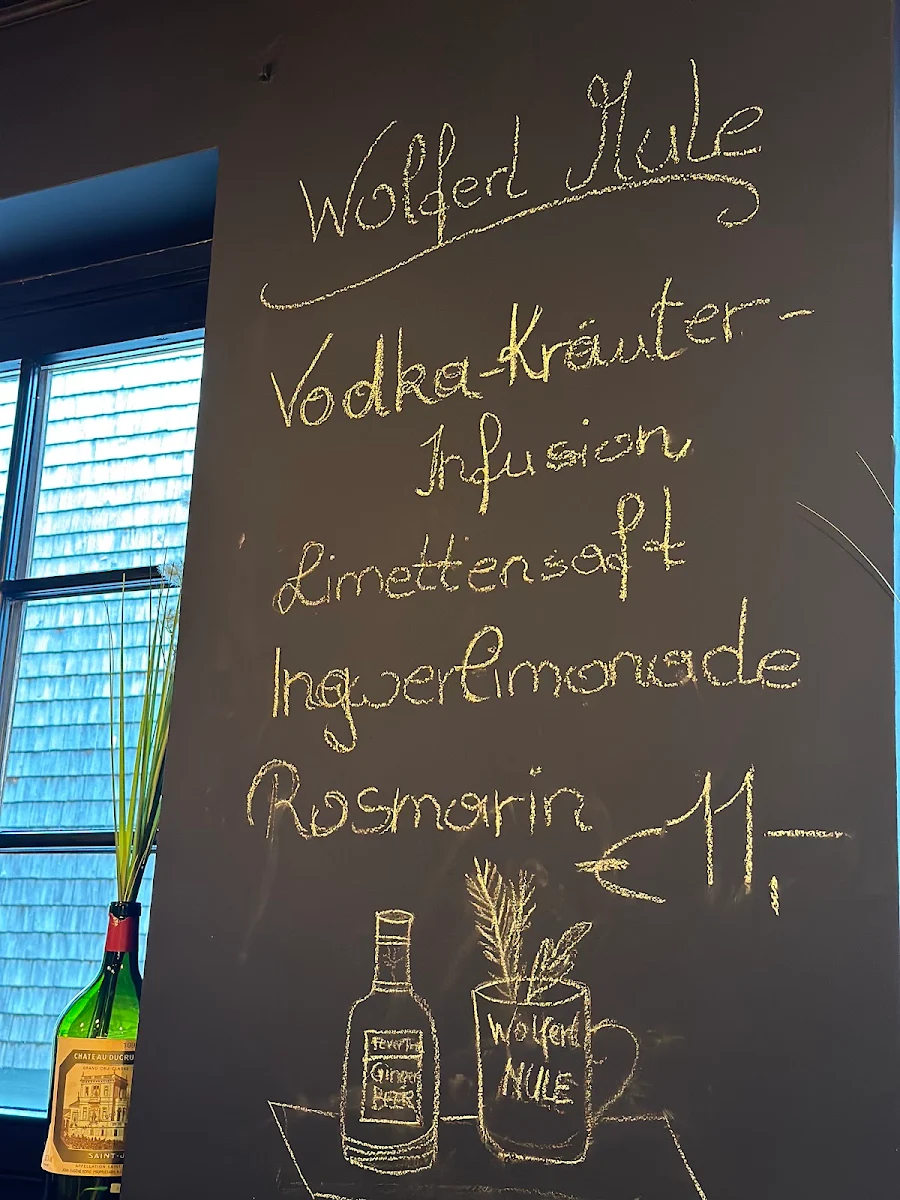 Wolferl Mule
Vodka-Kräuter-
Infusion
Limettensaft
Ingwerlimonade
Rosmarin
€ 11,-
Ginger
BEER
Wolferl
MULE
CHATEAU DUCRU
GRAND CRU CLASSÉ
SAINT-J